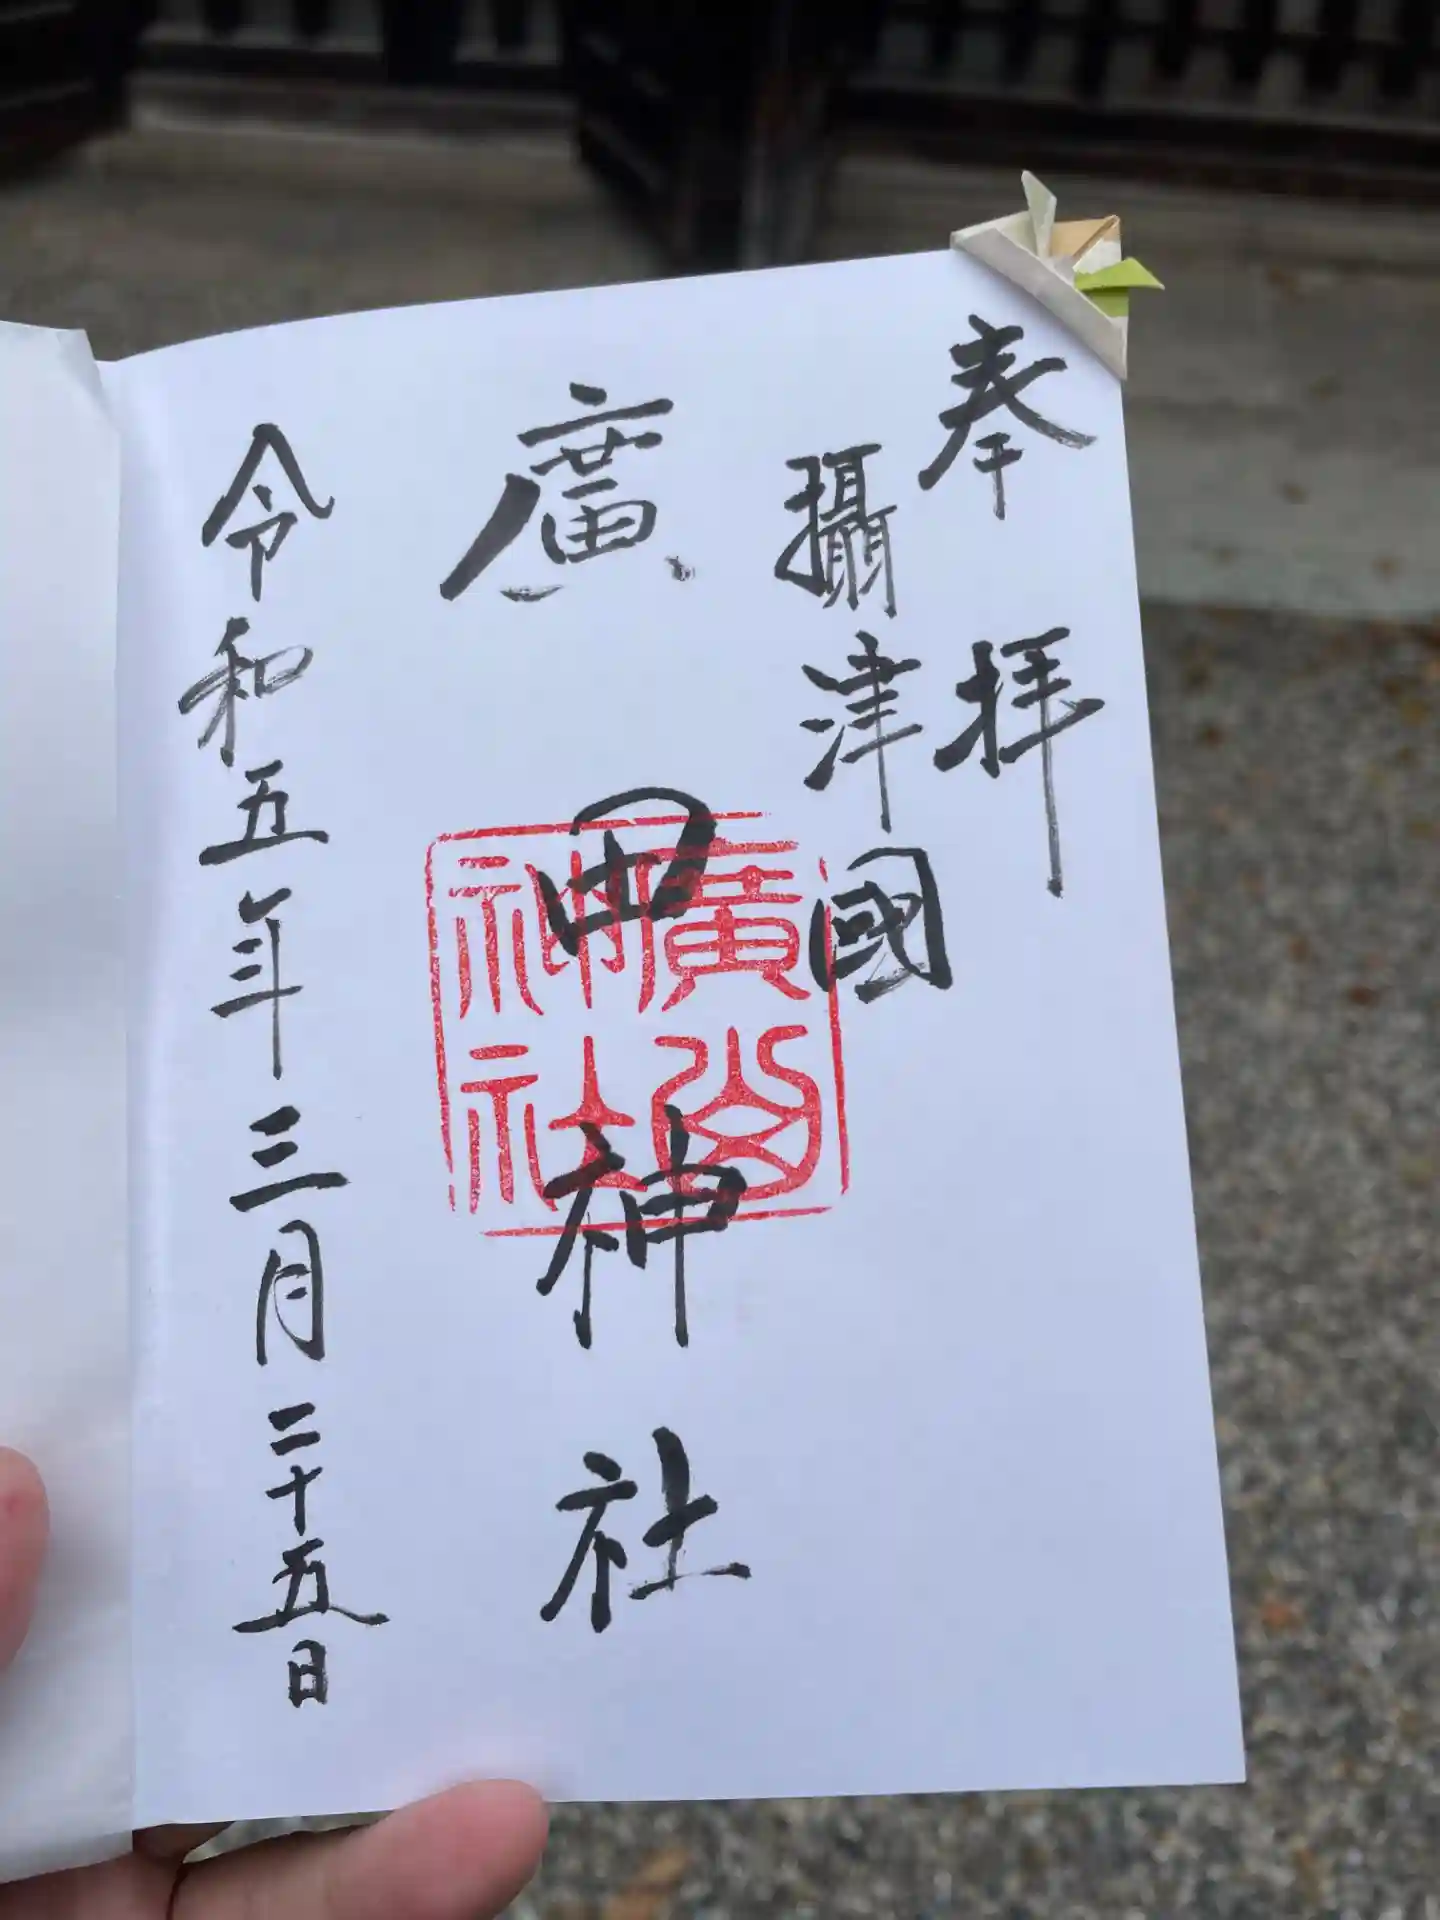 奉拝
攝津國
廣田神社
廣
神社
令和五年三月二十五日